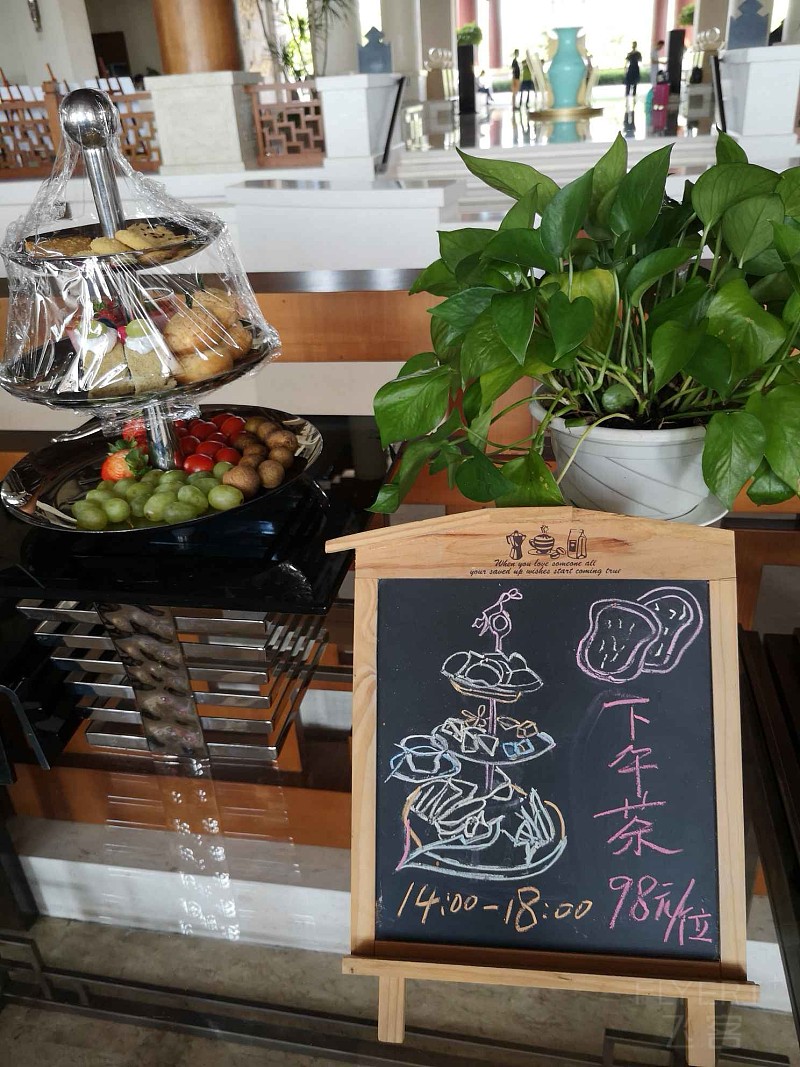 When you love someone all
your saved up wishes start coming true
下午茶
98元/位
14:00-18:00
FLYERT
飞客